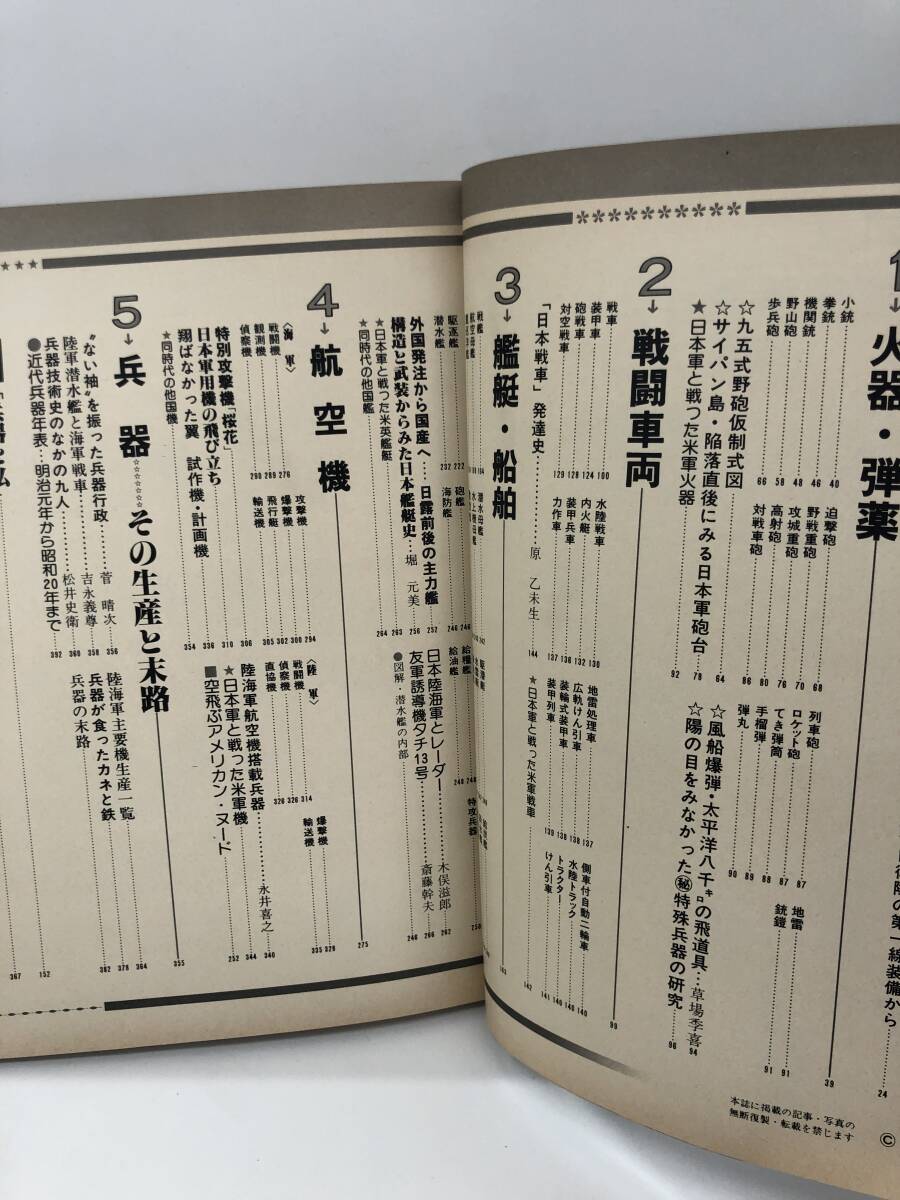 1→火器・弾薬
39
小銃……40
拳銃……46
機関銃……48
野山砲……58
歩兵砲……66
迫撃砲……68
野戦重砲……70
攻城重砲……76
高射砲……80
対戦車砲……86
列車砲……87
ロケット砲……87
てき弾筒……88
手榴弾……89
弾丸……90
地雷……91
銃鎧……91
☆九五式野砲仮制式図……64
☆サイパン島・陥落直後にみる日本軍砲台……78
★日本軍と戦つた米軍火器……92
☆風船爆弾・太平洋八千㌔の飛道具…草場季喜 94
☆陽の目をみなかった㊙特殊兵器の研究…96
線装備から……24
2→戦闘車両
99
戦車……100
装甲車……124
砲戦車……128
対空戦車……129
水陸戦車……130
内火艇……132
装甲兵車……136
力作車……137
地雷処理車……137
広軌けん引車……138
装輪式装甲車……138
装甲列車……139
側車付自動二輪車……140
水陸トラック……140
トラクター……140
けん引車……141
「日本戦車」発達史……原 乙未生……144
★日本軍と戦つた米軍戦車……142
3→艦艇・船舶
163
駆逐艦……222
潜水艦……232
砲艦……246
海防艦……246
給糧艦……248
給油艦……248
特攻兵器……250
外国発注から国産へ……日露前後の主力艦……252
構造と武装からみた日本艦艇史…堀 元美…256
★日本軍と戦つた米英艦艇……263
★同時代の他国艦……264
日本陸海軍とレーダー……木俣滋郎……262
友軍誘導機タチ13号……斎藤幹夫……266
●図解・潜水艦の内部……246
4→航空機
275
〈海軍〉
戦闘機……276
観測機……289
偵察機……290
攻撃機……294
爆撃機……300
飛行艇……302
輸送機……305
〈陸軍〉
戦闘機……314
偵察機……326
直協機……326
爆撃機……328
輸送機……335
特別攻撃機「桜花」……306
日本軍用機の飛び立ち……310
翔ばなかった翼 試作機・計画機……336
★同時代の他国機……354
陸海軍航空機搭載兵器……永井喜之……340
★日本軍と戦つた米軍機……344
■空飛ぶアメリカン・ヌード……252
5→兵器☆☆☆☆☆☆その生産と末路
355
“ない袖”を振った兵器行政……菅 晴次……356
陸軍潜水艦と海軍戦車……吉永義尊……358
兵器技術史のなかの九人……松井史衛……360
●近代兵器年表…明治元年から昭和20年まで……392
陸海軍主要機生産一覧……364
兵器が食ったカネと鉄……378
兵器の末路……362
152
367
本誌に掲載の記事・写真の
無断復製・転載を禁じます
©